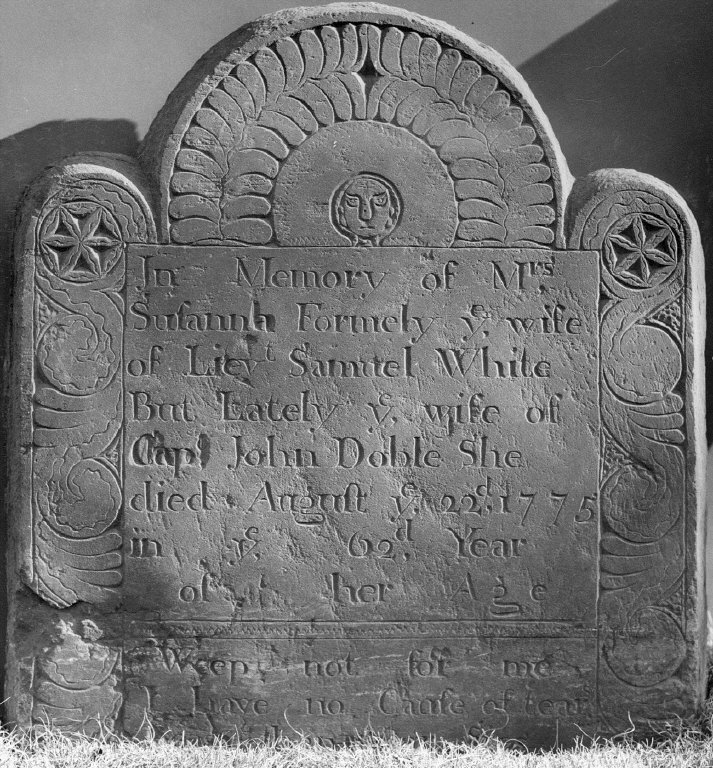 In Memory of Mrs
Suſanna Formely ye wife
of Lieut Samuel White
But Lately ye wife of
Capt John Doble She
died Auguſt ye 22d, 1775
in ye 62d Year
of her Age
Weep not for me
I have no Cauſe of fear